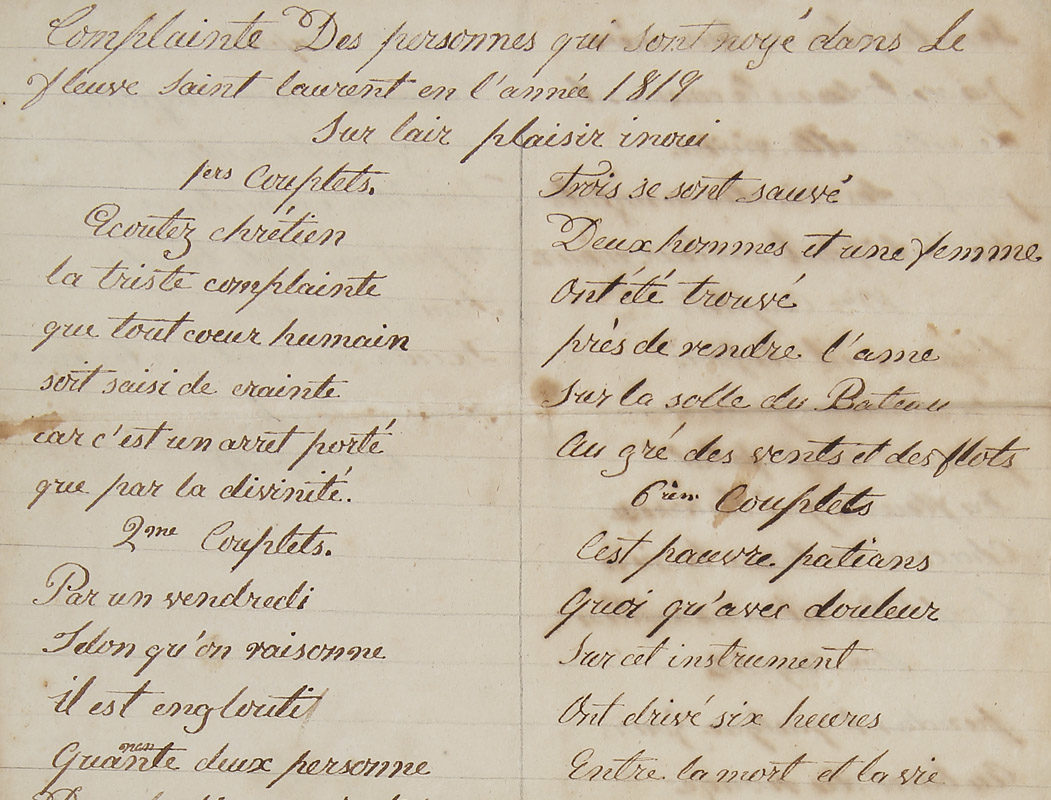 Complainte Des personnes qui sont noyé dans Le
fleuve Saint laurent en l'année 1819
Sur lair plaisir inoui
1ers Couplets.
Ecoutez chrétien
la triste complainte
que tout coeur humain
soit saisi de crainte
car c'est un arret porté
que par la divinité.
2me Couplets.
Par un vendredi
Selon qu'on raisonne
il est englouti
Quarante deux personne
Trois se sont sauvé
Deux hommes et une femme
Ont été trouvé
près de rendre l'ame
Sur la solle du Bateau
Au gré des vents et des flots
6ièm Couplets
C'est pauvre patians
Quoi qu'avec douleur
Sur cet instrument
Ont drivé six heures
Entre la mort et la vie